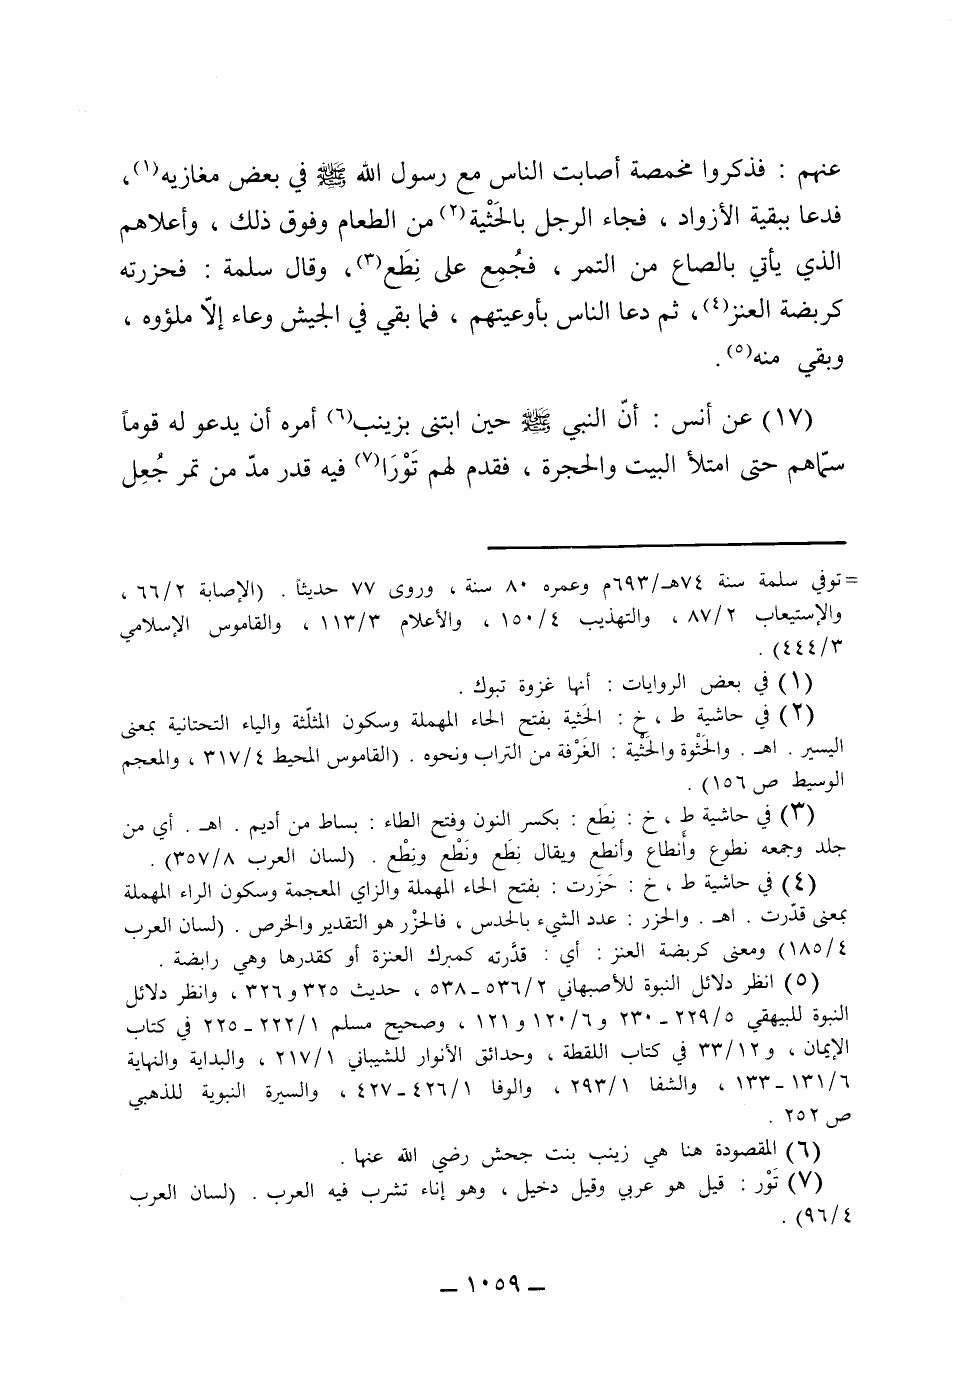 عنهم : فذكروا مخمصة أصابت الناس مع رسول الله ﷺ في بعض مغازيه(١)،
فدعا ببقية الأزواد ، فجاء الرجل بالحَثْية(٢) من الطعام وفوق ذلك ، وأعلاهم
الذي يأتي بالصاع من التمر ، فجُمِع على نِطَع(٣)، وقال سلمة : فحزرته
كربضة العنز(٤)، ثم دعا الناس بأوعيتهم ، فما بقي في الجيش وعاء إلاّ ملؤوه ،
وبقي منه(٥).
(١٧) عن أنس : أنّ النبي ﷺ حين ابتنى بزينب(٦) أمره أن يدعو له قوماً
سمّاهم حتى امتلأ البيت والحجرة ، فقدم لهم تَوْرَا(٧) فيه قدر مدّ من تمر جُعِل
=توفي سلمة سنة ٧٤هـ/٦٩٣م وعمره ٨٠ سنة ، وروى ٧٧ حديثاً . (الإصابة ٦٦/٢ ،
والإستيعاب ٨٧/٢ ، والتهذيب ١٥٠/٤ ، والأعلام ١١٣/٣ ، والقاموس الإسلامي
٤٤٤/٣) .
(١) في بعض الروايات : أنها غزوة تبوك .
(٢) في حاشية ط ، خ : الحَثية بفتح الحاء المهملة وسكون المثلّثة والياء التحتانية بمعنى
اليسير . اهـ . والحَثْوة والحَثْية : الغَرْفة من التراب ونحوه . (القاموس المحيط ٣١٧/٤ ، والمعجم
الوسيط ص ١٥٦) .
(٣) في حاشية ط ، خ : نِطَع : بكسر النون وفتح الطاء : بساط من أديم . اهـ . أي من
جلد وجمعه نطوع وأنطاع وأنطع ويقال نِطَع ونَطْع ونِطْع . (لسان العرب ٣٥٧/٨) .
(٤) في حاشية ط ، خ : حَزَرت : بفتح الحاء المهملة والزاي المعجمة وسكون الراء المهملة
بمعنى قدّرت . اهـ . والحزر : عدد الشيء بالحدس ، فالحزْر هو التقدير والخرص . (لسان العرب
١٨٥/٤) ومعنى كربضة العنز : أي : قدَّرته كمبرك العنزة أو كقدرها وهي رابضة .
(٥) انظر دلائل النبوة للأصبهاني ٥٣٦/٢ ـ ٥٣٨ ، حديث ٣٢٥ و ٣٢٦ ، وانظر دلائل
النبوة للبيهقي ٢٢٩/٥ ـ ٢٣٠ و ١٢٠/٦ و ١٢١ ، وصحيح مسلم ٢٢٢/١ ـ ٢٢٥ في كتاب
الإيمان ، و ٣٣/١٢ في كتاب اللقطة ، وحدائق الأنوار للشيباني ٢١٧/١ ، والبداية والنهاية
١٣١/٦ ـ ١٣٣ ، والشفا ٢٩٣/١ ، والوفا ٤٢٦/١ ـ ٤٢٧ ، والسيرة النبوية للذهبي
ص ٢٥٢ .
(٦) المقصودة هنا هي زينب بنت جحش رضي الله عنها .
(٧) تَوْر : قيل هو عربي وقيل دخيل ، وهو إناء تشرب فيه العرب . (لسان العرب
٩٦/٤) .
ـ ١٠٥٩ ـ